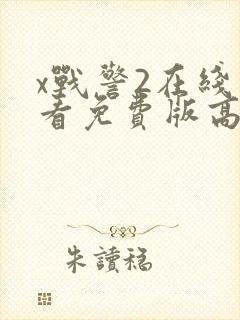 x戰警2在綫
看免費版高
朱讀稳